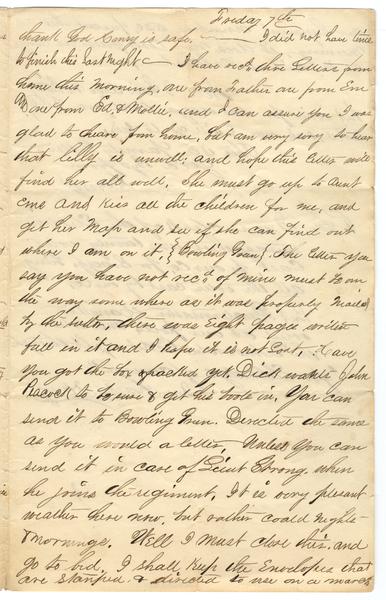 Friday 7th
thank God Henry is safe. — I did not have time
to finish this last night — I have recd. three letters from
home this morning, one from Father one from Em
& one from Ed. & Mollie, and I can assure you I was
glad to heare from home, but am very sory to hear
that Lilly is unwell; and hope this letter will
find her all well. She must go up to Aunt
Ems and kiss all the children for me, and
get her Map and see if she can find out
where I am on it, {Bowling Green}. The letter you
say you have not recd. of mine must be on
the way some where as it was properly mailed
by the sutler, there was Eight pages writen
full in it and I hope it is not lost. Have
you got the box packed yet. Dick wants John
Peacock to be sure & get his boots in. You can
send it to Bowling Green. Directed the same
as you would a letter. Unless you can
send it in care of Lieut Strong. when
he joins the regiment. It is very plesant
weather here now, but rather could nights
& mornings. Well I must close this. and
go to bed. I shall keep the Envelopes that
are stamped & directed to use on a march